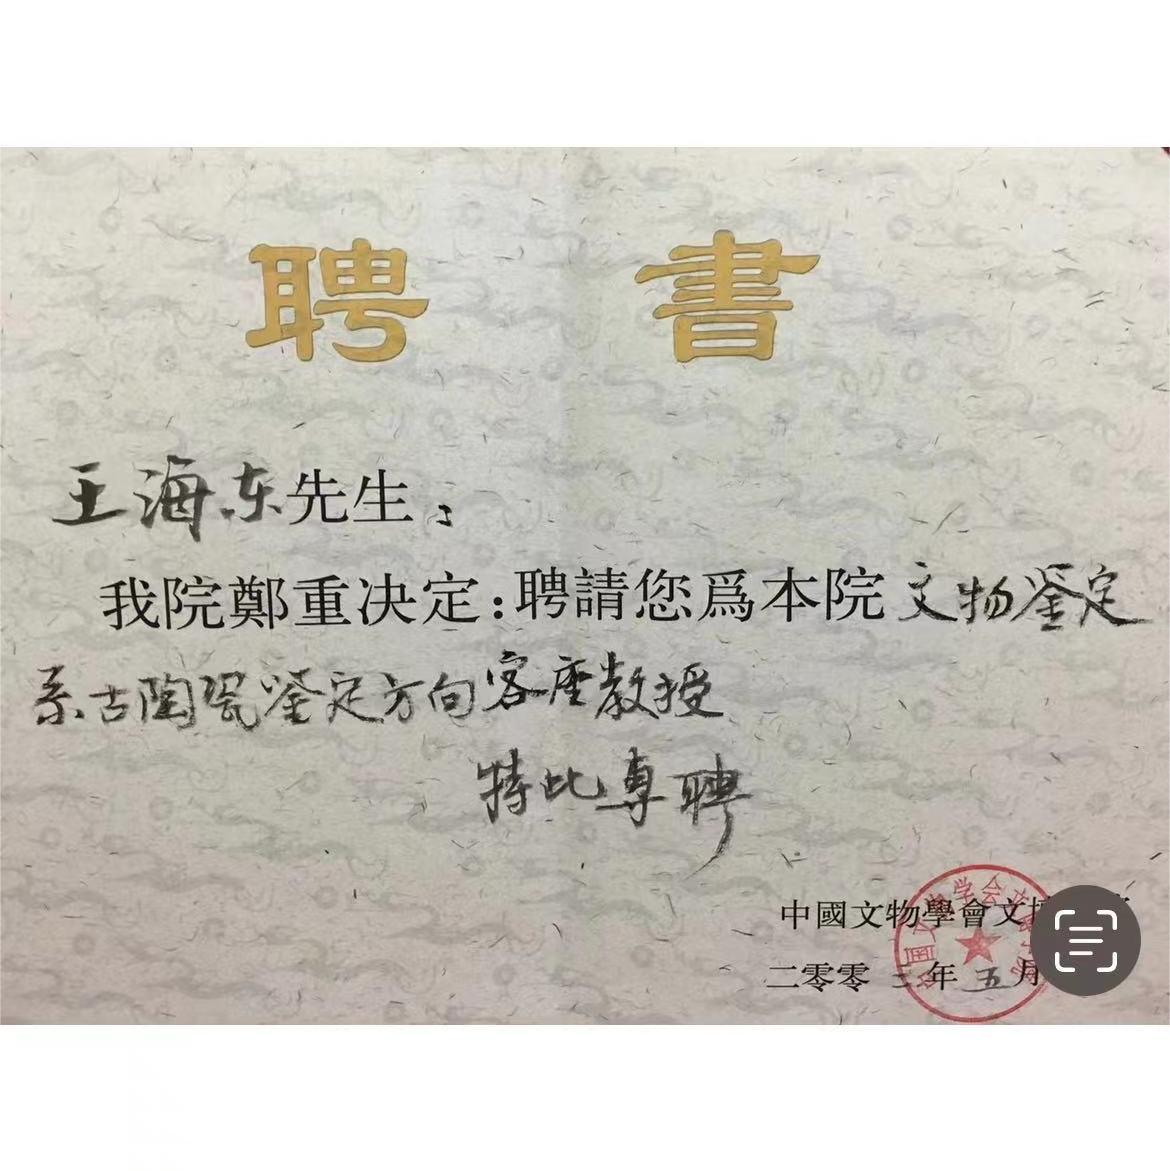 聘書
王海东先生:
我院鄭重决定:聘請您爲本院文物鉴定
系古陶瓷鉴定方向客座教授
特此專聘
中國文物學會文博
二零零三年五月